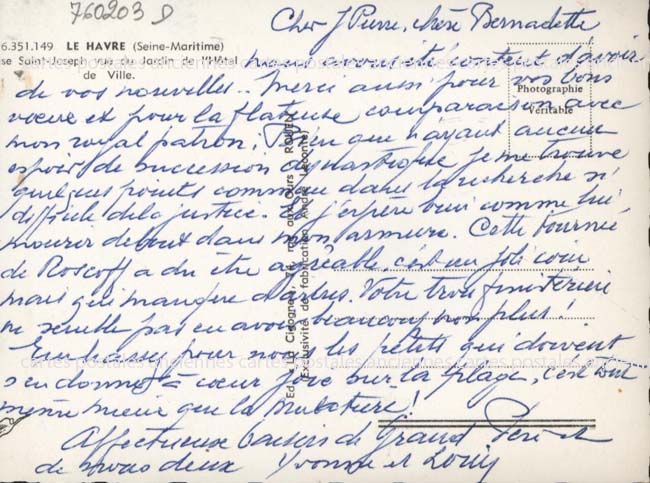 760203 D
Cher J Pierre, chère Bernadette
6.351.149 LE HAVRE (Seine-Maritime)
se Saint-Joseph vue du Jardin de l'Hôtel
de Ville.
Photographie
Véritable
nous avons été contents d'avoir
de vos nouvelles.. Merci aussi pour vos bons
voeux et pour la flateuse comparaison avec
mon royal patron. Bien que n'ayant aucun
espoir de succession je me trouve
quelques points communs dans la recherche si
difficile de la justice. Et j'espère bien comme lui
mourir debout dans mon armure. Cette tournée
de Roscoff a dû être agréable, c'est un joli coin
mais qui manque d'autres. Votre trou finistérien
ne semble pas en avoir beaucoup non plus!
Embrassez pour nous les petits qui doivent
s'en donner à coeur joie sur la plage, c'est tout
même mieux que la !
Affectueux baisers de Grand Père et
de nous deux Yvonne et Louis
Ed. « La Cigogne », 74, rue aux Ours - ROUEN
(Exclusivité de fabrication André Leconte)
cartes postales anciennes cartes postales anciennes cartes postales